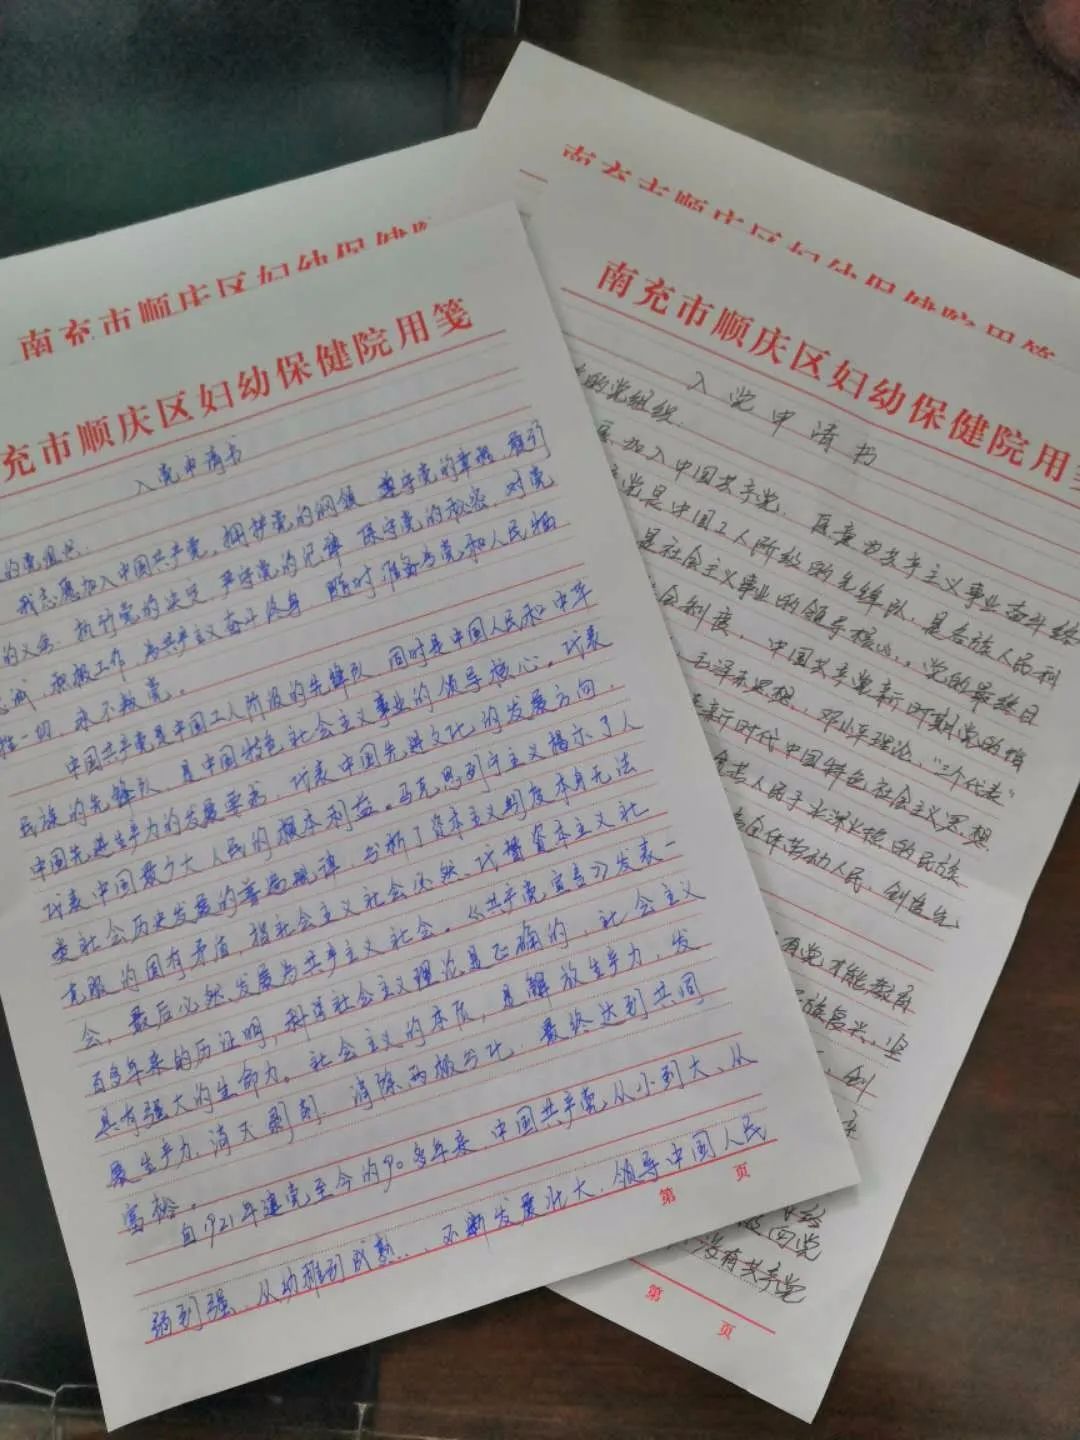 南充市顺庆区妇幼保健院
充市顺庆区妇幼保健院用笺
入党申请书
的党组织:
我志愿加入中国共产党,拥护党的纲领,遵守党的章程,履行
的义务,执行党的决定,严守党的纪律,保守党的秘密,对党
忠诚,积极工作,为共产主义奋斗终身,随时准备为党和人民牺
牲一切,永不叛党。
中国共产党是中国工人阶级的先锋队,同时是中国人民和中华
民族的先锋队,是中国特色社会主义事业的领导核心。代表
中国先进生产力的发展要求,代表中国先进文化的发展方向,
代表中国最广大人民的根本利益。马克思列宁主义揭示了人
类社会历史发展的普遍规律,分析了资本主义制度本身无法
克服的固有矛盾,指社会主义社会必然代替资本主义社
会,最后必然发展为共产主义社会。《共产党宣言》发表一
百多年来的历证明,科学社会主义理论是正确的,社会主义
具有强大的生命力。社会主义的本质,是解放生产力,发
展生产力,消灭剥削,消除两极分化,最终达到共同
富裕。
自1921年建党至今的90多年来,中国共产党从小到大、从
弱到强、从幼稚到成熟,不断发展壮大,领导中国人民
第 页
南充市顺庆区妇幼保健院用笺
南充市顺庆区妇幼保健院用
入党申请书
的党组织:
加入中国共产党,愿意为共产主义事业奋斗终
党是中国工人阶级的先锋队,是各族人民利
是社会主义事业的领导核心。党的最终目
会制度。中国共产党新时期党的指
毛泽东思想,邓小平理论,“三个代表”
新时代中国特色社会主义思想
人民于水深火热的民族
全体劳动人民,创造
有党才能教育
族复兴,
创
向党
没有共产党
第 页